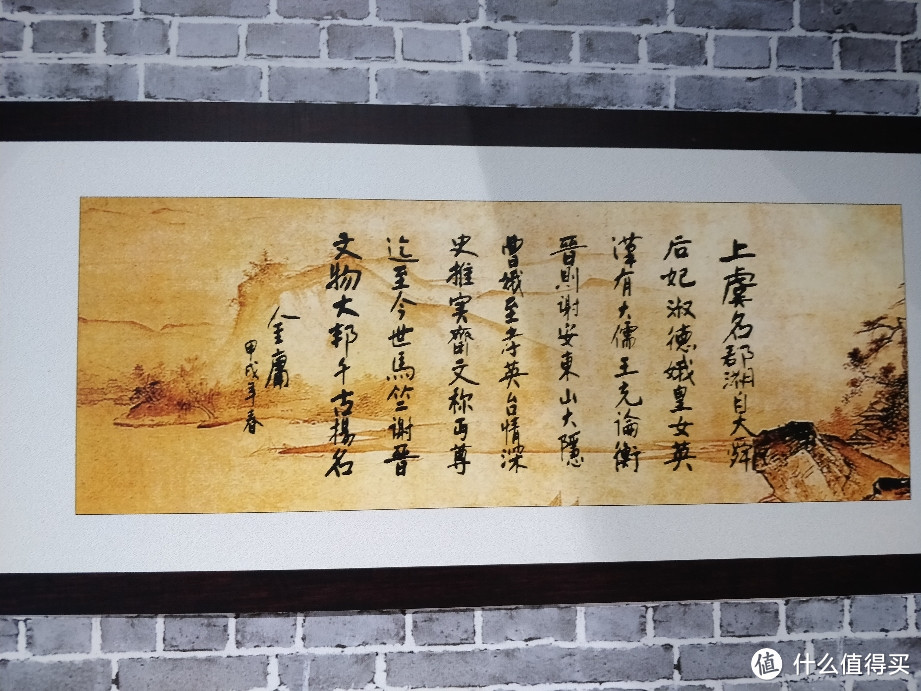 上虞名郡溯自大舜
后妃淑德娥皇女英
漢有大儒王充論衡
晉則谢安東山大隱
曹娥至孝英台情深
史推实齋文称丏尊
迄至今世馬竺谢晉
文物大邦千古揚名
金庸
甲戌年春
值 什么值得买